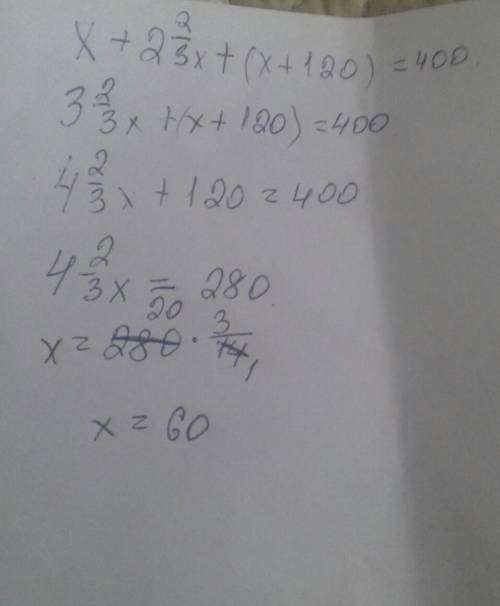 x + 2 2/3 x + (x + 120) = 400.
3 2/3 x + (x + 120) = 400
4 2/3 x + 120 = 400
4 2/3 x = 280.
20
x = 280 · 3/14 1
x = 60